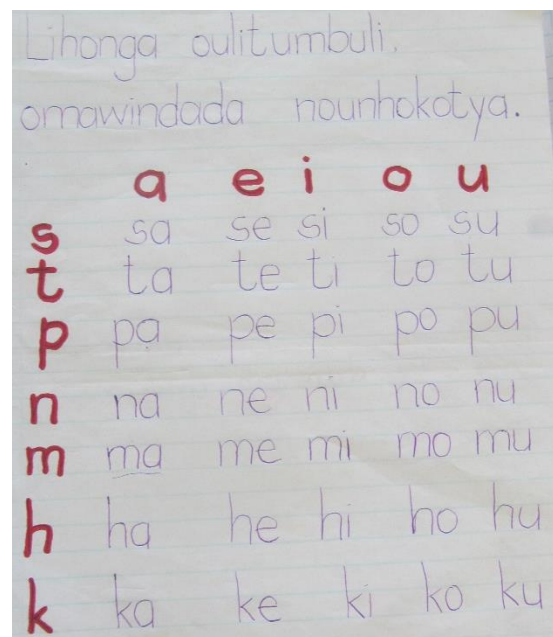 Lihonga oulitumbuli.
omawindada nounhokotya.
a e i o u
s sa se si so su
t ta te ti to tu
p pa pe pi po pu
n na ne ni no nu
m ma me mi mo mu
h ha he hi ho hu
k ka ke ki ko ku